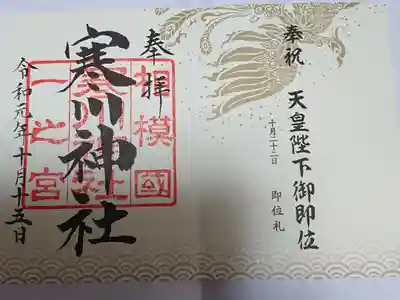 奉祝
天皇陛下御即位
十月二十二日
即位礼
奉拝
寒川神社
相模國
寒川神社
一之宮
令和元年十月十五日